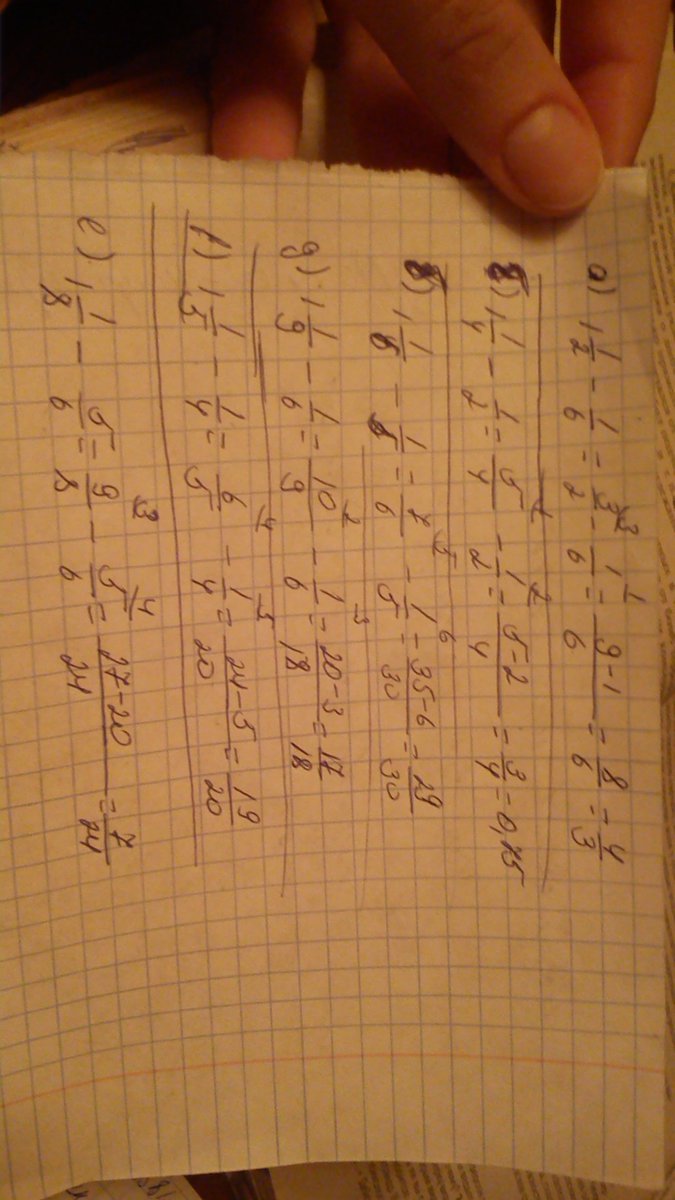 а) 1 1/2 - 1/6 = 3/2 ³ - 1/6 ¹ = 9-1/6 = 8/6 = 4/3
1 1/4 - 1/2 = 5/4 ¹ - 1/2 ² = 5-2/4 = 3/4 = 0,75
1 1/6 - 1/5 = 7/6 ⁵ - 1/5 ⁶ = 35-6/30 = 29/30
g) 1 1/9 - 1/6 = 10/9 ² - 1/6 ³ = 20-3/18 = 17/18
1 1/5 - 1/4 = 6/5 ⁴ - 1/4 ⁵ = 24-5/20 = 19/20
е) 1 1/8 - 5/6 = 9/8 ³ - 5/6 ⁴ = 27-20/24 = 7/24